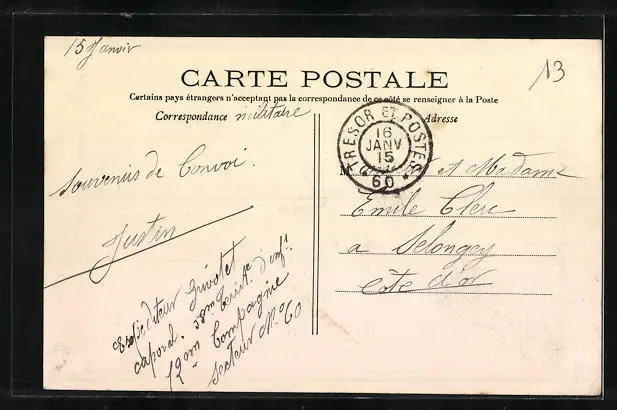 15 Janvir
13
CARTE POSTALE
Certains pays étrangers n'acceptant pas la correspondance de ce côté se renseigner à la Poste
Correspondance militaire
Adresse
TRESOR ET POSTES
16
JANV
15
* 60 *
Souvenirs de Convoi.
Justin
Expéditeur Grivotet
caporal. 58me d'inft
12em Compagnie
Secteur No 60
M et Madame
Emile Clerc
a Selongey
Cote d'or